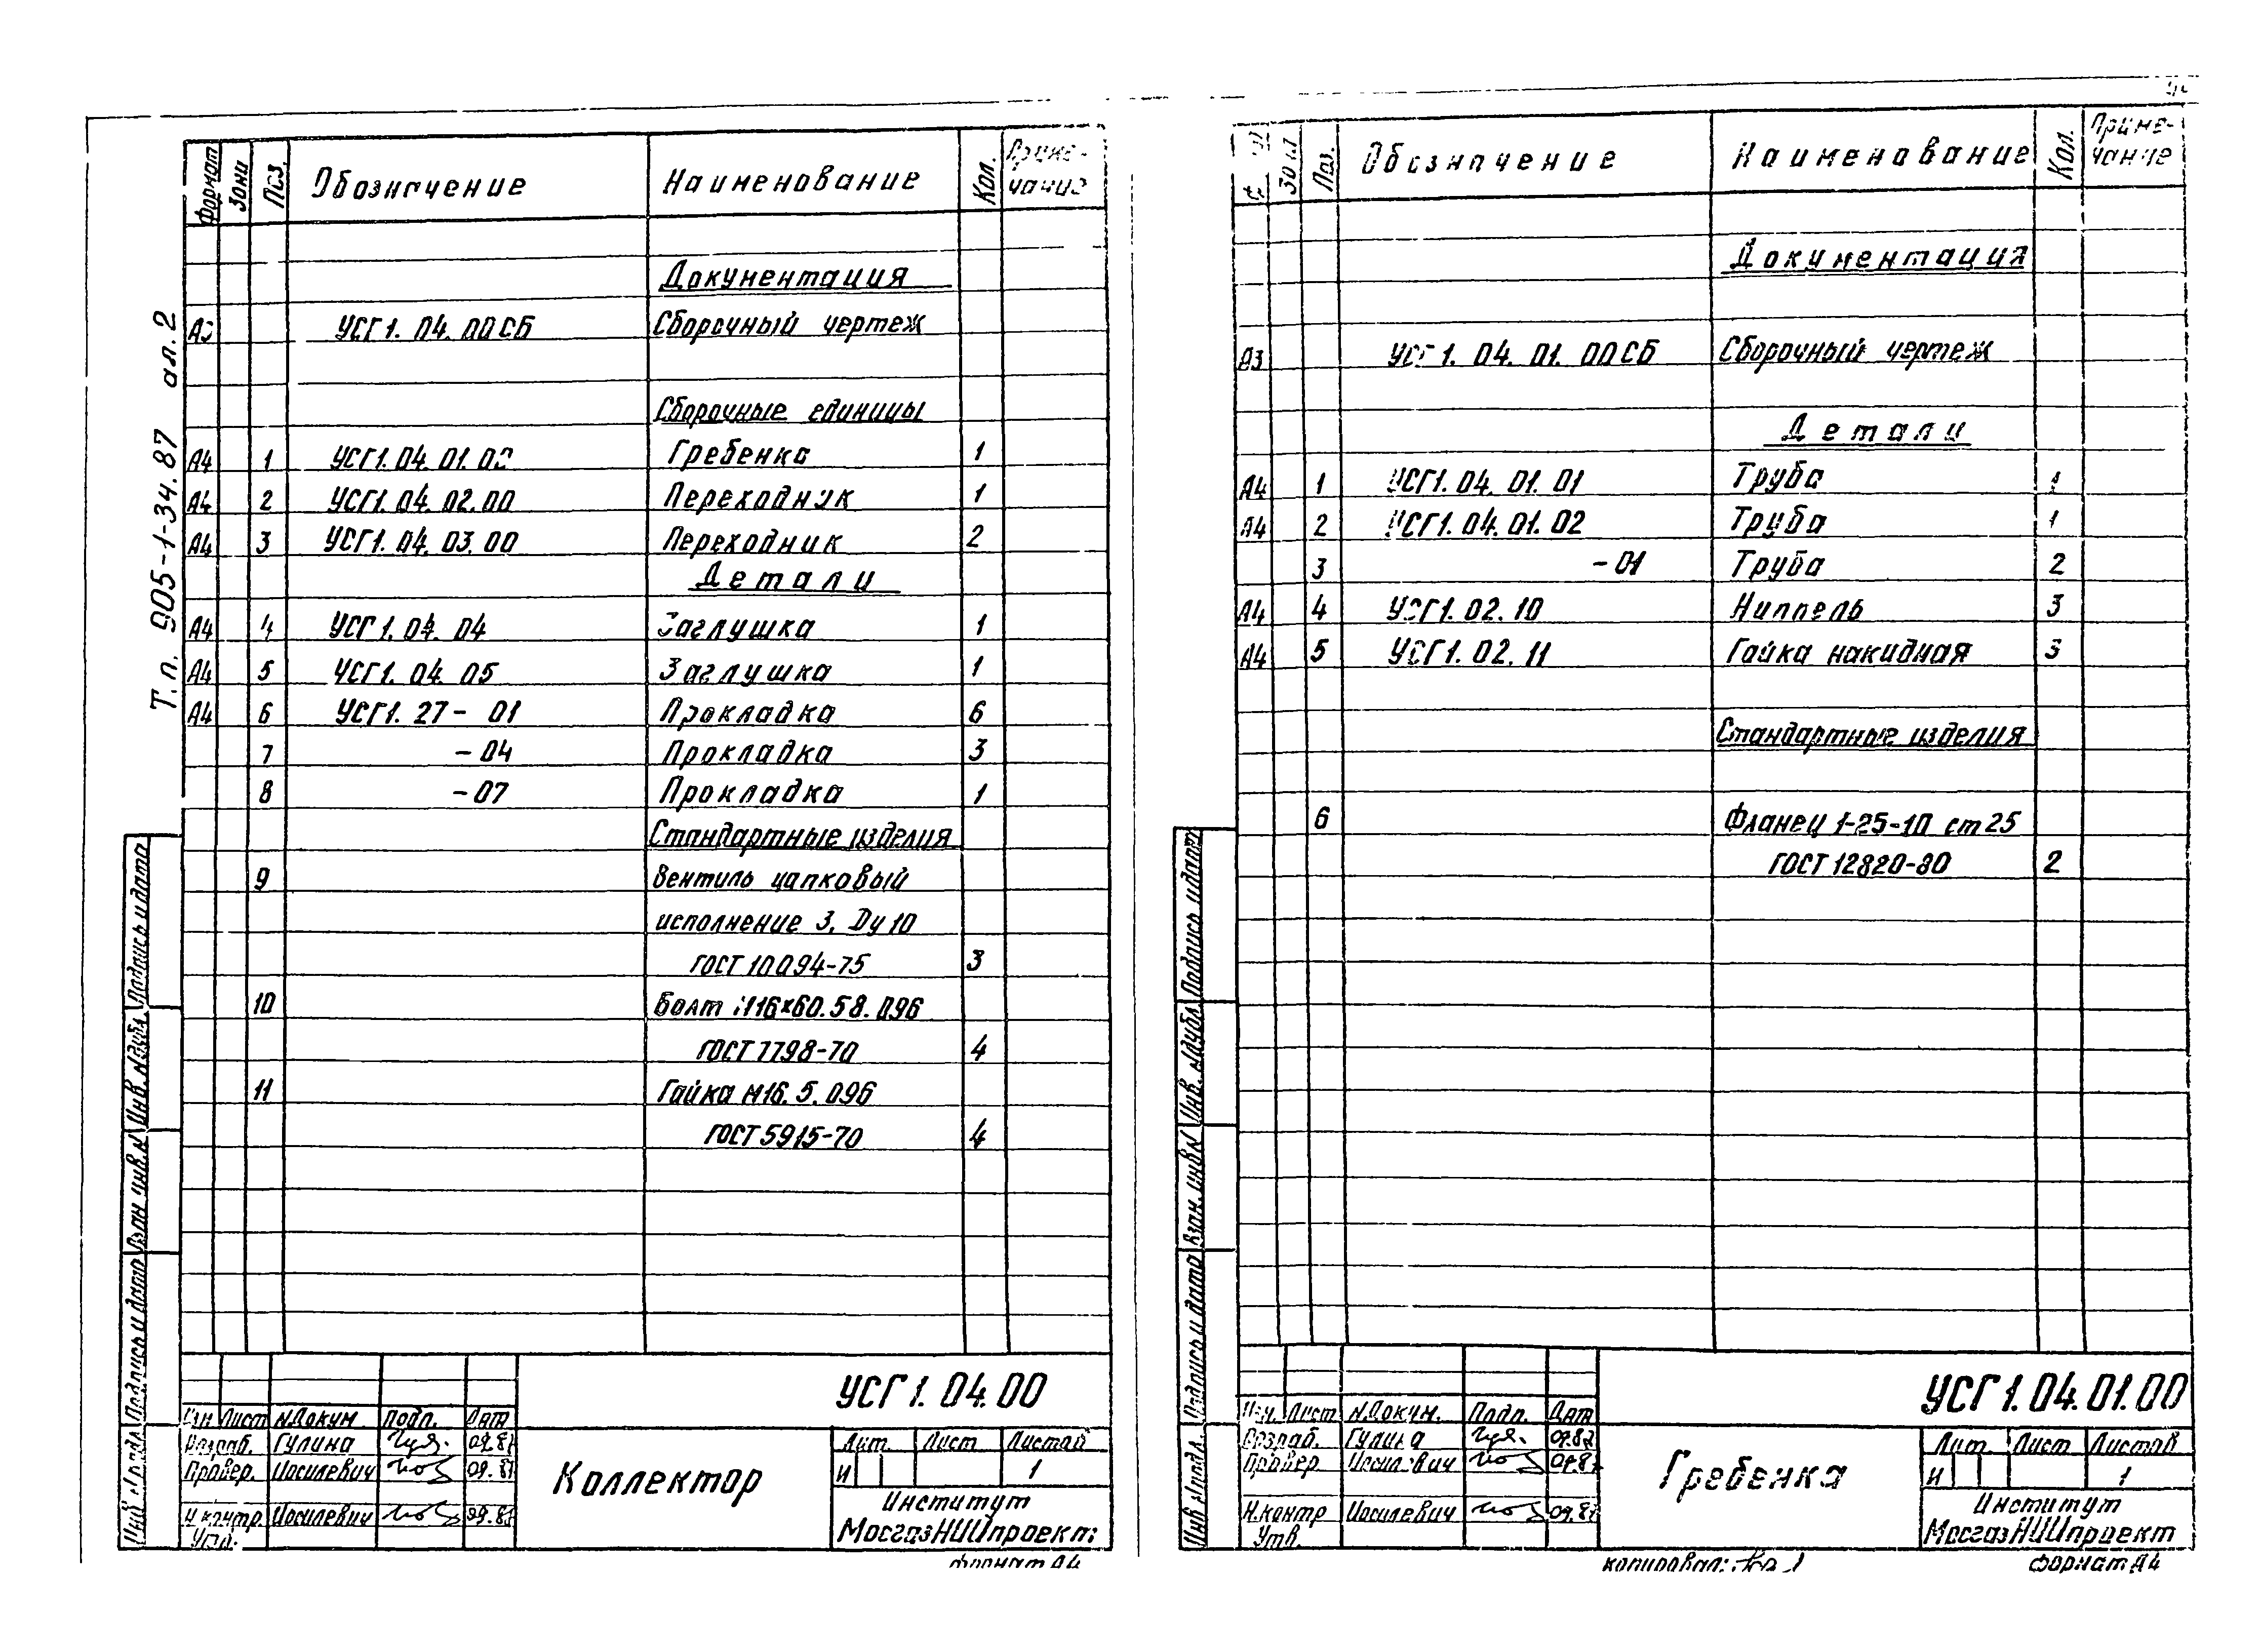 Т.п. 905-1-34.87 ал.2
Формат Зона Поз. Обозначение Наименование Кол. Приме-
чание
Документация
А3 УСГ1. 04. 00СБ Сборочный чертеж
Сборочные единицы
А4 1 УСГ1. 04. 01. 00 Гребенка 1
А4 2 УСГ1. 04. 02. 00 Переходник 1
А4 3 УСГ1. 04. 03. 00 Переходник 2
Детали
А4 4 УСГ1. 04. 04 Заглушка 1
А4 5 УСГ1. 04. 05 Заглушка 1
А4 6 УСГ1. 27- 01 Прокладка 6
7 -04 Прокладка 3
8 -07 Прокладка 1
Стандартные изделия
9 Вентиль цапковый
исполнение 3, Dу 10
ГОСТ 10094-75 3
10 Болт М16х60.58.096
ГОСТ 7798-70 4
11 Гайка М16.5.096
ГОСТ 5915-70 4
Подпись и дата
Инв. № дубл.
Взам инв.№
Подпись и дата
Инв № подл.
УСГ1. 04.00
Изм. Лист № Докум. Подп. Дата
Разраб. Гулина 09.87
Провер. Иосилевич 09.87
Н.контр. Иосилевич 09.87
Утв.
Коллектор
Лит. Лист Листов
И 1
Институт
МосгазНИИпроект
формат А4
Зона Поз. Обозначение Наименование Кол. Приме-
чание
Документация
А3 УСГ1. 04. 01. 00СБ Сборочный чертеж
Детали
А4 1 УСГ1. 04. 01. 01 Труба 1
А4 2 УСГ1. 04. 01. 02 Труба 1
3 -01 Труба 2
А4 4 УСГ1. 02. 10 Ниппель 3
А4 5 УСГ1. 02. 11 Гайка накидная 3
Стандартные изделия
6 Фланец 1-25-10 ст 25
ГОСТ 12820-80 2
Подпись и дата
Инв. № дубл.
Взам. инв.№
Подпись и дата
Инв № подл.
УСГ1.04.01.00
Изм. Лист № Докум. Подп. Дата
Разраб. Гулина 09.87
Провер. Иосилевич 09.87
Н.контр Иосилевич 09.87
Утв.
Гребенка
Лит. Лист Листов
И 1
Институт
МосгазНИИпроект
копировал:
формат А4